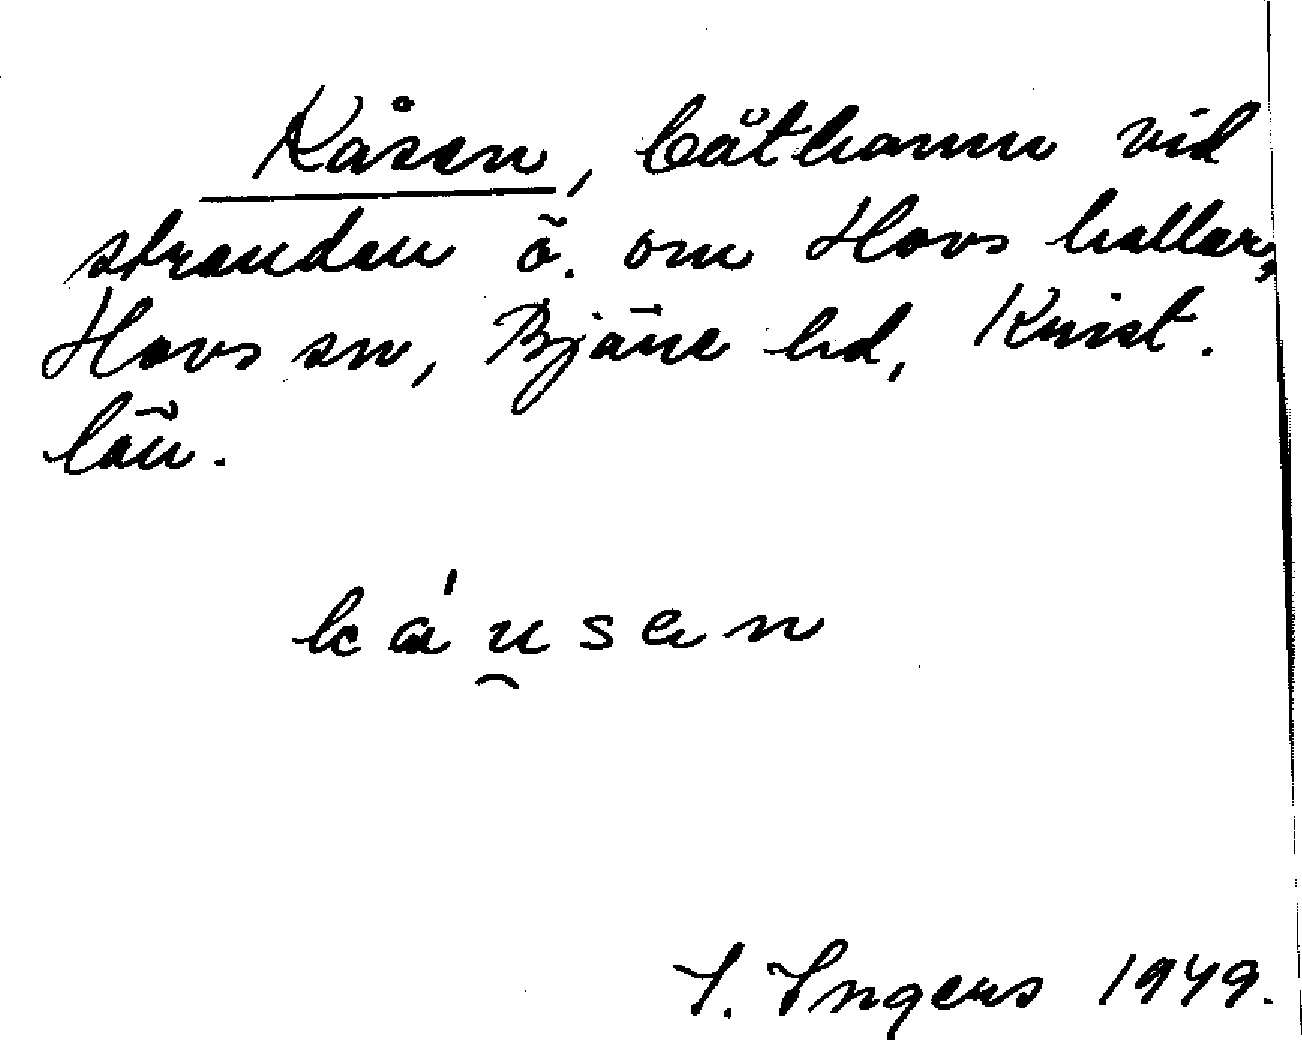 Kåsen, båthamn vid
stranden ö. om Hovs hallar,
Hovs sn, Bjäre hd, Krist.
län.
káu̯sen
I. Ingers 1949.